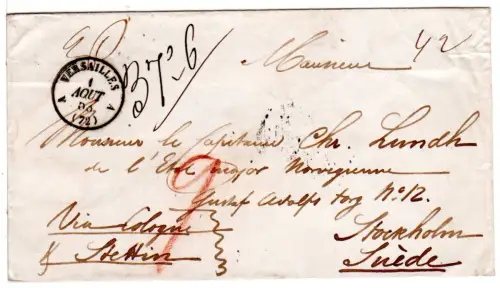 42
37-6
VERSAILLES
1
AOUT
53
(72)
A A
Monsieur
Monsieur le Capitaine Chr. Lundh
de l'Etat major Norvegienne
Gustaf Adolfs torg No 12.
Via Cologne
& Stettin
Stockholm
Suède